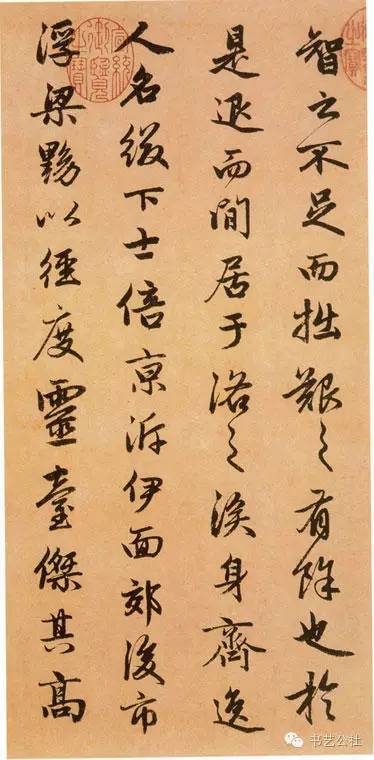 智之不足而拙艱之有餘也於
是退而閒居于洛之涘身齊逸
人名綴下士倍京泝伊面郊後市
浮梁黝以徑度靈臺傑其高
书艺公社